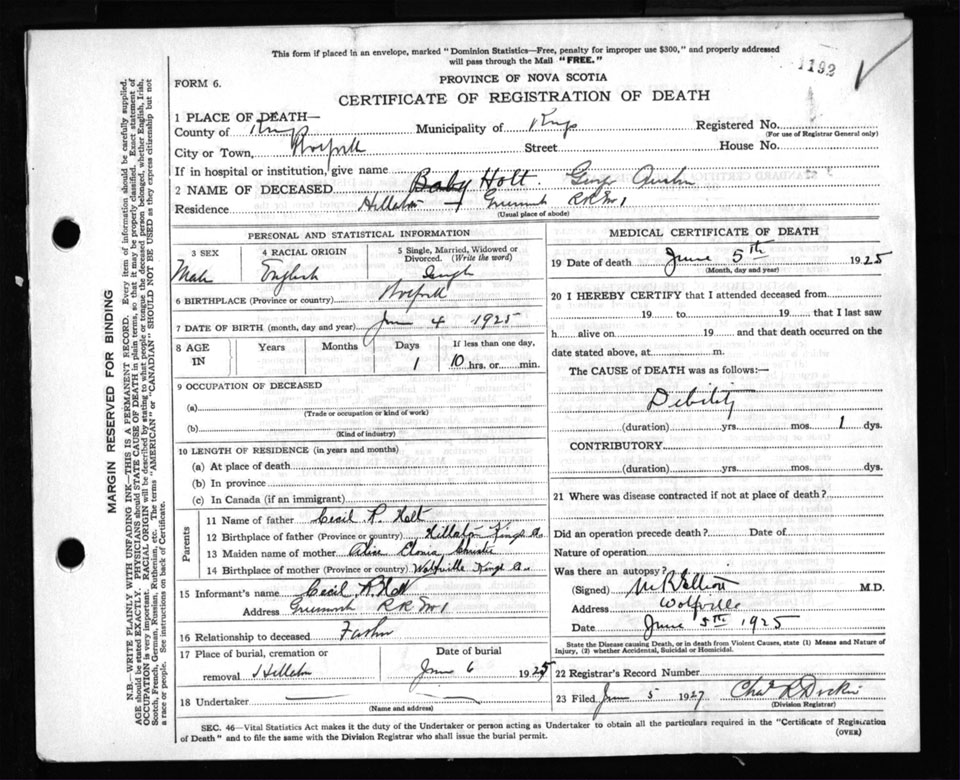 This form if placed in an envelope, marked "Dominion Statistics—Free, penalty for improper use $300," and properly addressed
will pass through the Mail "FREE."
1192
FORM 6.
PROVINCE OF NOVA SCOTIA
CERTIFICATE OF REGISTRATION OF DEATH
1 PLACE OF DEATH—
County of Kings Municipality of Kings Registered No.
(For use of Registrar General only)
City or Town, Street House No.
If in hospital or institution, give name
2 NAME OF DECEASED Baby Holt. George
Residence Hillaton RR No 1
(Usual place of abode)
PERSONAL AND STATISTICAL INFORMATION
3 SEX 4 RACIAL ORIGIN 5 Single, Married, Widowed or
Divorced. (Write the word)
Male English Single
6 BIRTHPLACE (Province or country)
7 DATE OF BIRTH (month, day and year) June 4 1925
8 AGE IN Years Months Days If less than one day,
1 10 hrs. or min.
9 OCCUPATION OF DECEASED
(a)
(Trade or occupation or kind of work)
(b)
(Kind of industry)
10 LENGTH OF RESIDENCE (in years and months)
(a) At place of death
(b) In province
(c) In Canada (if an immigrant)
Parents
11 Name of father Cecil P. Holt
12 Birthplace of father (Province or country) Hillaton Kings Co.
13 Maiden name of mother Alice Christie
14 Birthplace of mother (Province or country) Wolfville Kings Co.
15 Informant's name Cecil P. Holt
Address RR No 1
16 Relationship to deceased Father
17 Place of burial, cremation or Date of burial
removal Hillaton June 6 1925
18 Undertaker
(Name and address)
MEDICAL CERTIFICATE OF DEATH
19 Date of death June 5th 1925
(Month, day and year)
20 I HEREBY CERTIFY that I attended deceased from
19 to 19 that I last saw
h alive on 19 and that death occurred on the
date stated above, at m.
The CAUSE of DEATH was as follows:—
Debility
(duration) yrs. mos. 1 dys.
CONTRIBUTORY
(duration) yrs. mos. dys.
21 Where was disease contracted if not at place of death?
Did an operation precede death? Date of
Nature of operation
Was there an autopsy?
(Signed) M R Elliott M.D.
Address Wolfville
Date June 5th 1925
State the Disease causing Death, or in death from Violent Causes, state (1) Means and Nature of
Injury, (2) whether Accidental, Suicidal or Homicidal.
22 Registrar's Record Number
23 Filed June 5 1927 Chas
(Division Registrar)
SEC. 46—Vital Statistics Act makes it duty of the Undertaker or person acting as Undertaker to obtain all the particulars required in the "Certificate of Registration
of Death" and to file the same with the Division Registrar who shall issue the burial permit.
(OVER)
MARGIN RESERVED FOR BINDING
N.B.—WRITE PLAINLY WITH UNFADING INK—THIS IS A PERMANENT RECORD. Every item of information should be carefully supplied.
AGE should be stated EXACTLY. PHYSICIANS should STATE CAUSE OF DEATH in plain terms, so that it may be properly classified. Exact statement of
OCCUPATION is very important. RACIAL ORIGIN will be described by stating to what people or tongue the deceased person belonged, whether English, Irish,
Scotch, French, German, Russian, Ruthenian, etc. The terms "AMERICAN" or "CANADIAN" SHOULD NOT BE USED as they express citizenship but not
a race or people. See instructions on back of Certificate.